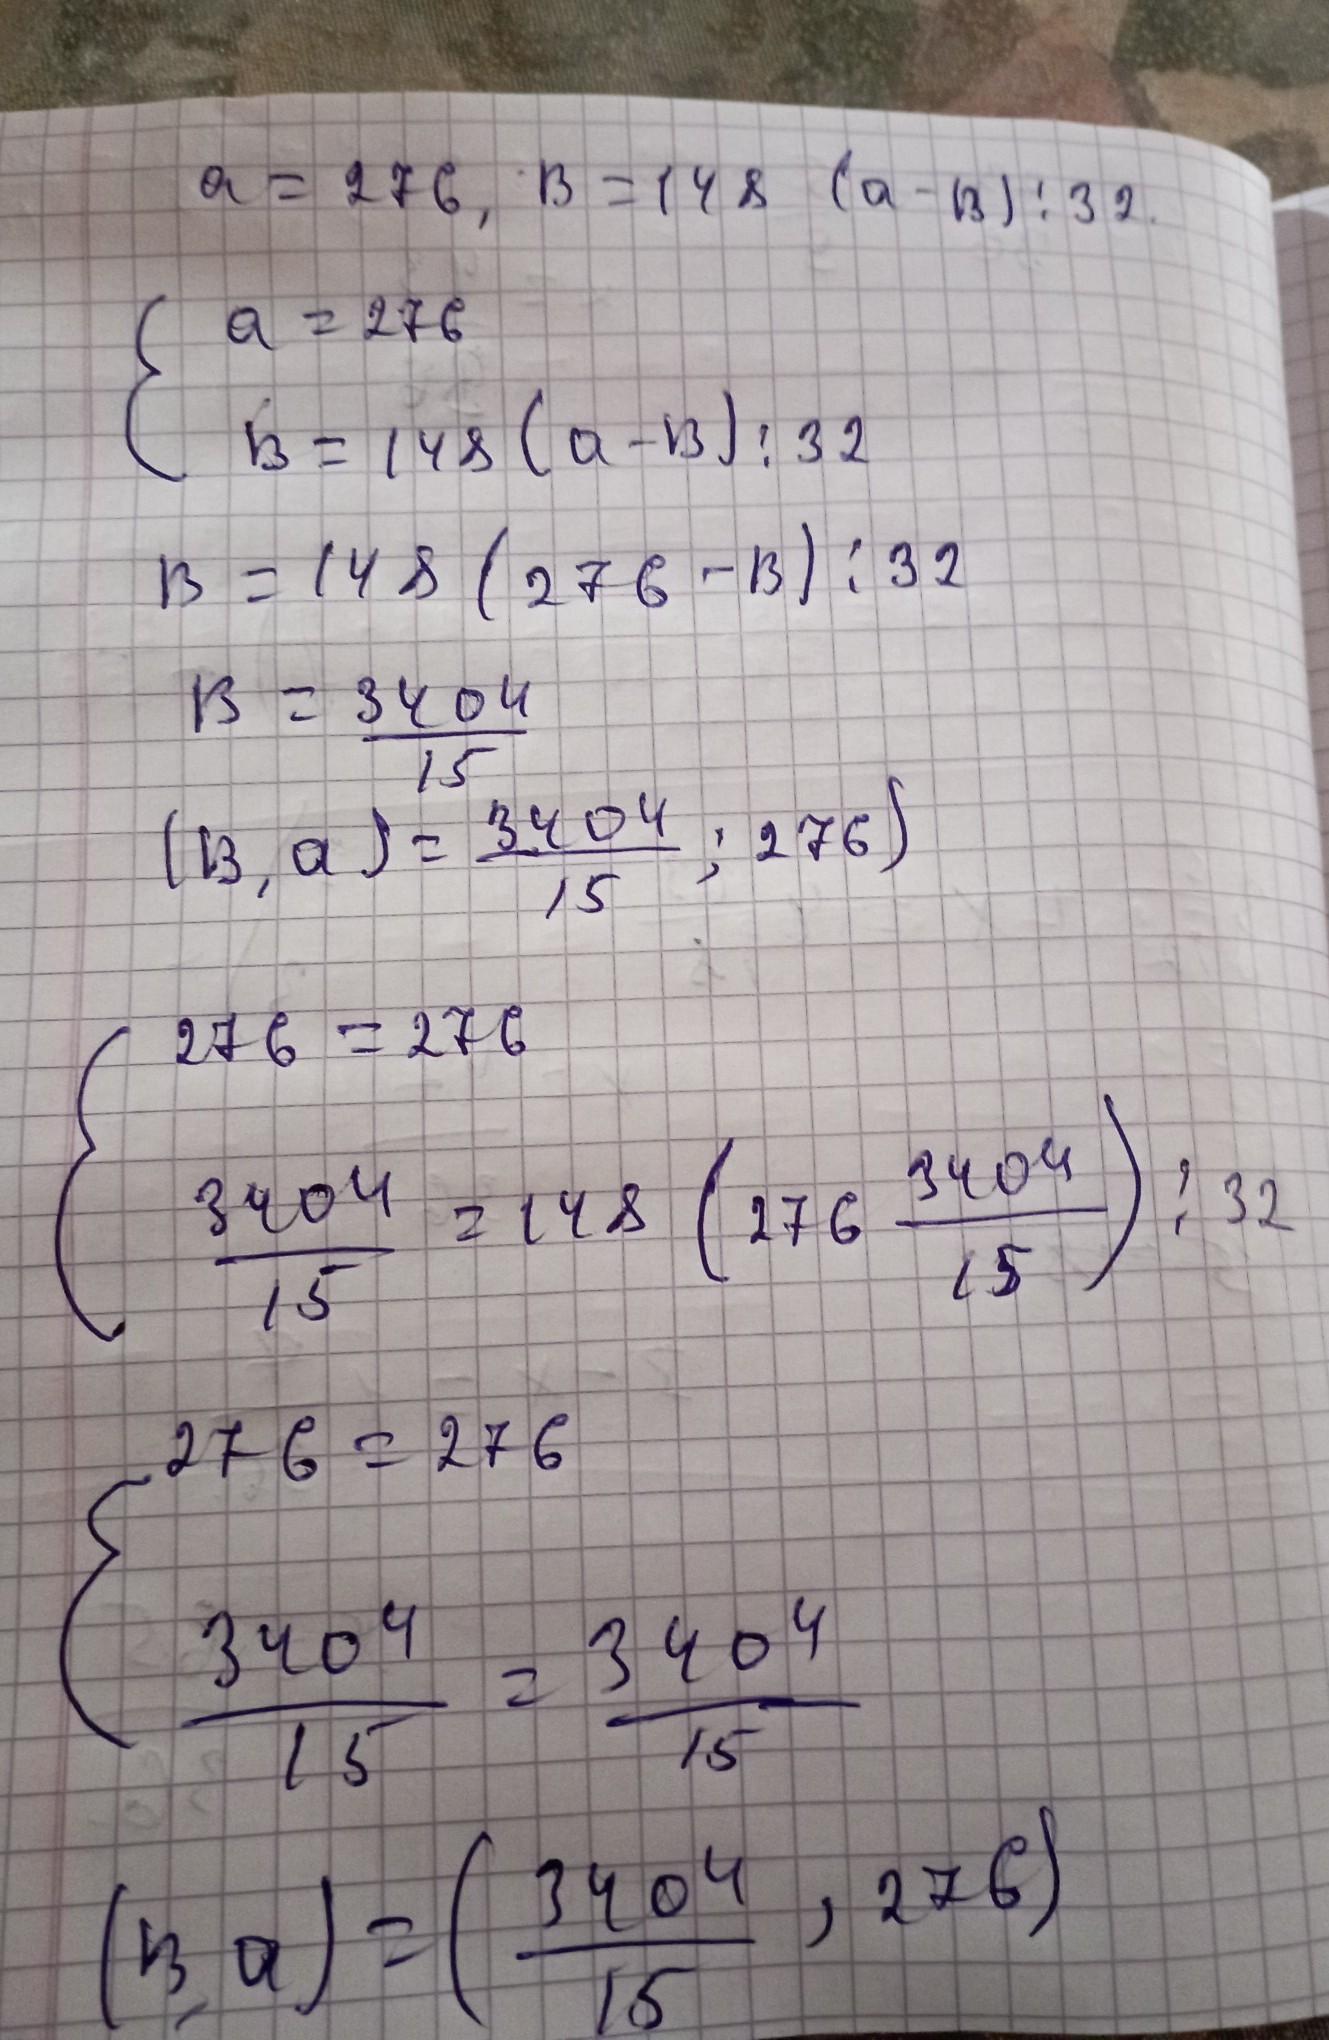 a = 276, B = 148 (a - B) : 32.
{ a = 276
B = 148 (a - B) : 32
B = 148 (276 - B) : 32
B = 3404/15
(B, a) = 3404/15 ; 276)
{ 276 = 276
3404/15 = 148 (276 3404/15) : 32
{ 276 = 276
3404/15 = 3404/15
(B, a) = (3404/15, 276)